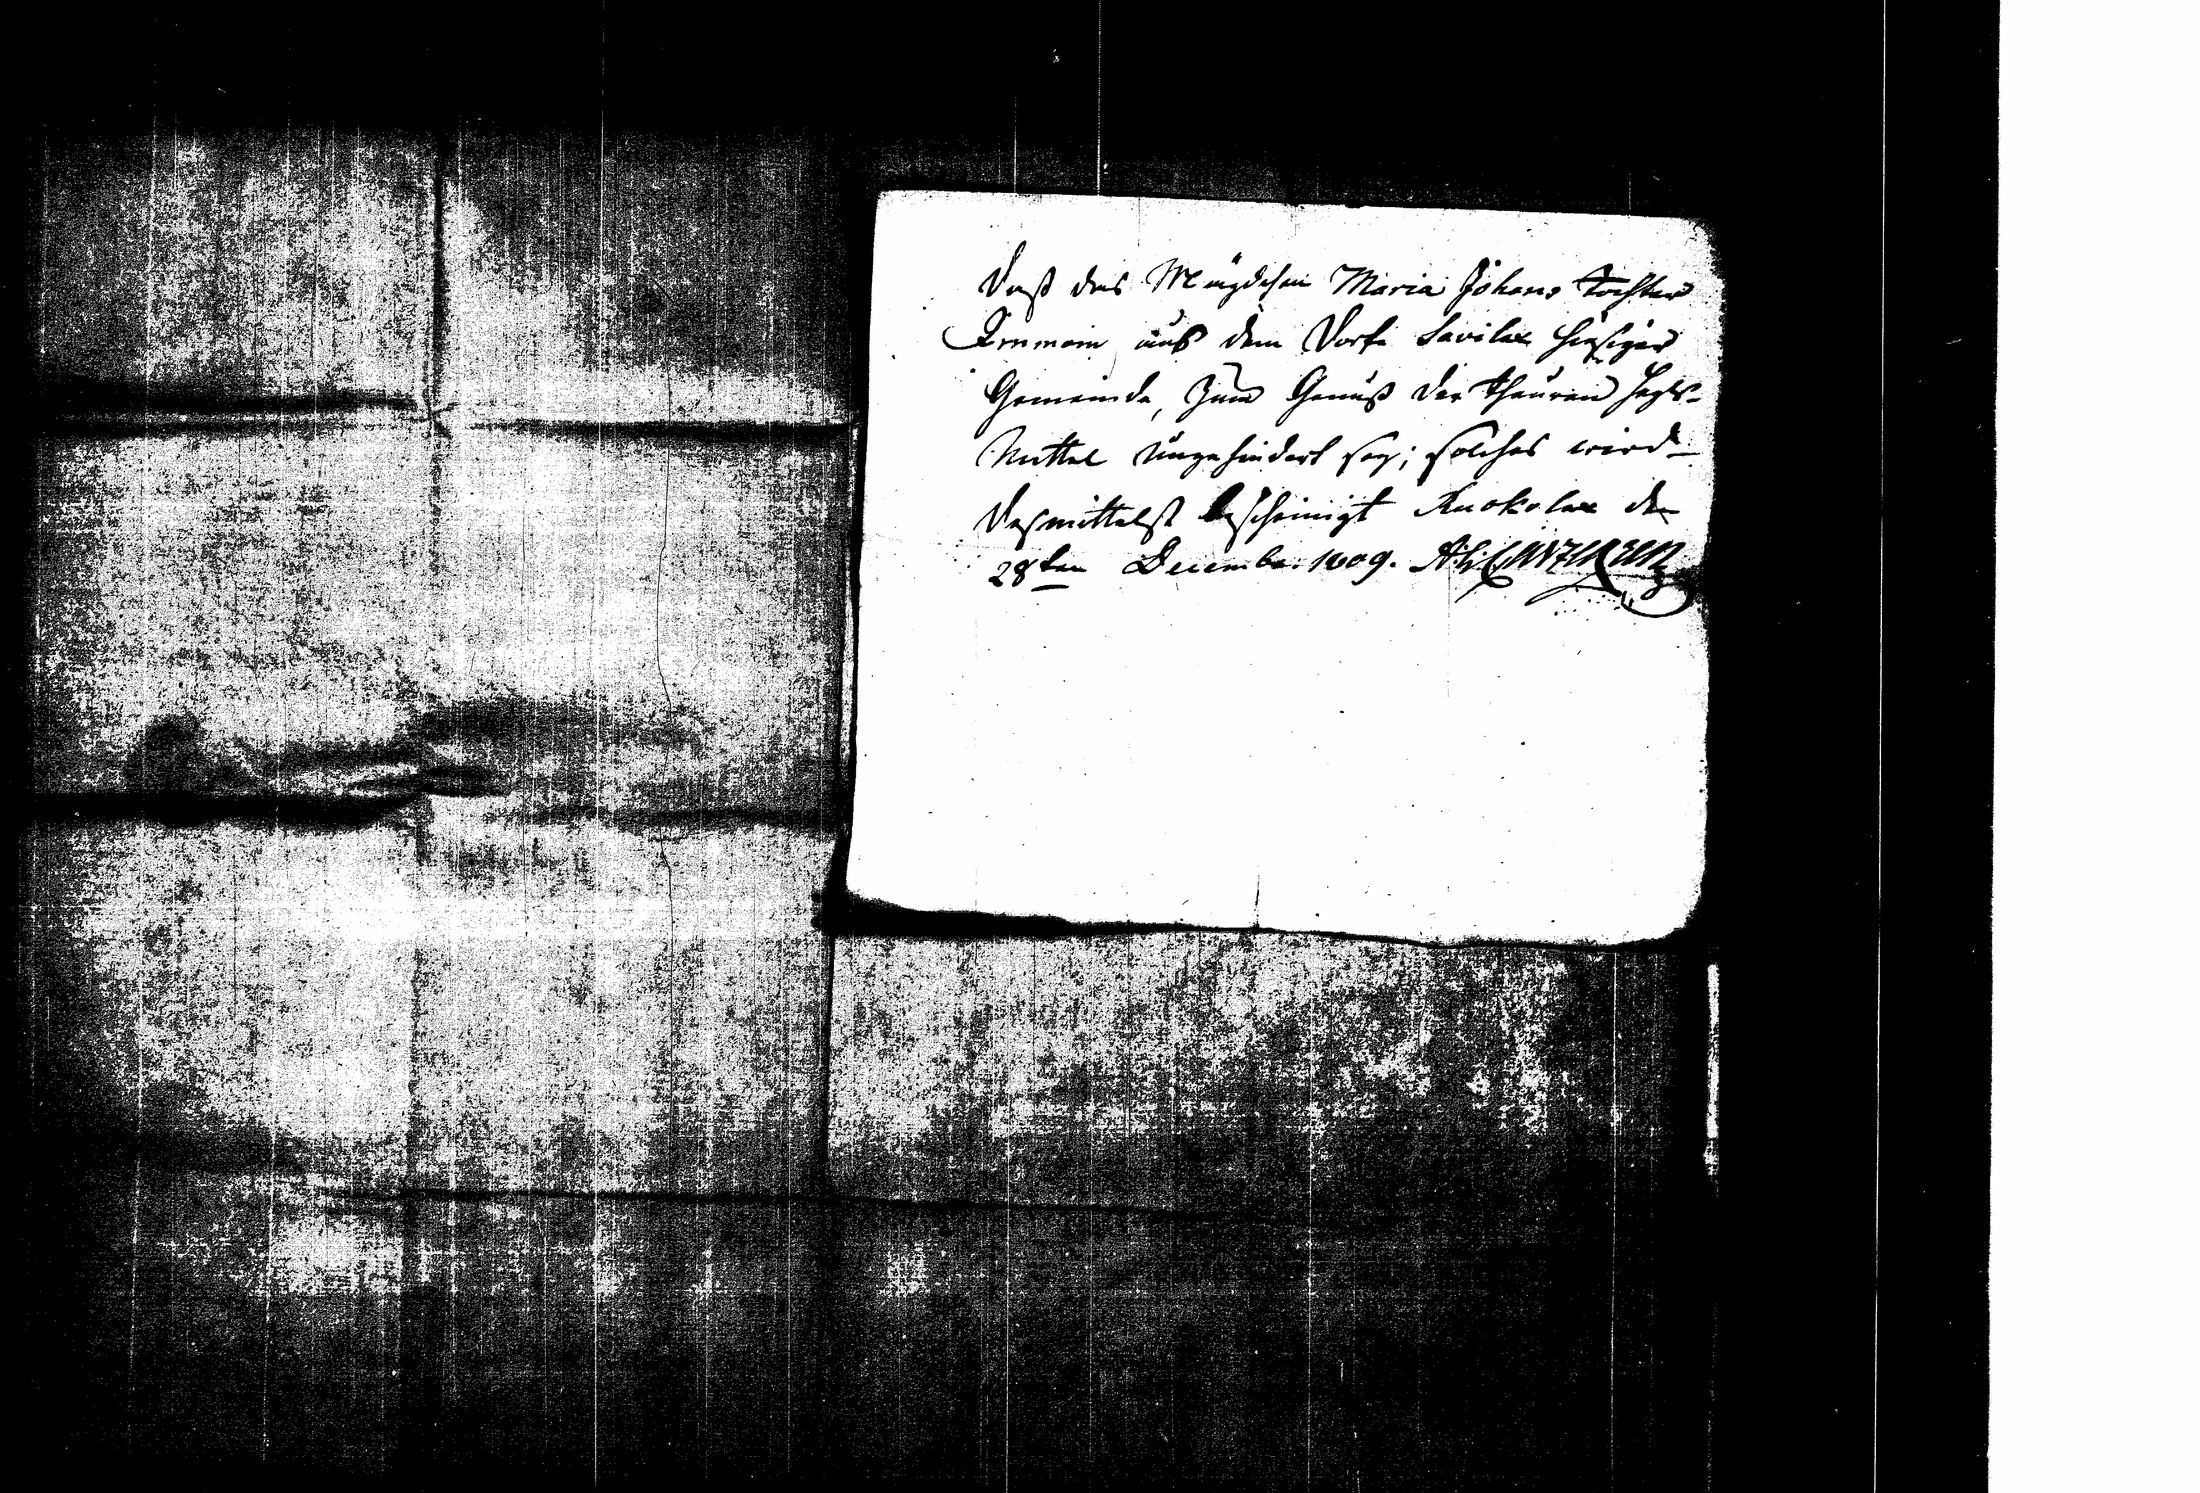 Daß das Mägdchen Maria Johans Tochter
Immoin aus dem Dorfe Savilax hiesiger
Gemeinde, zum Genuß der theuren Heyls-
Mittel ungehindert sey; solches wird
desmittelst bescheinigt Ruokolax den
28ten December 1809.